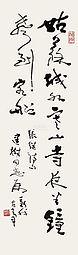 姑蘇城外寒山寺夜半鐘
聲到客船
張繼詩
建樹同志